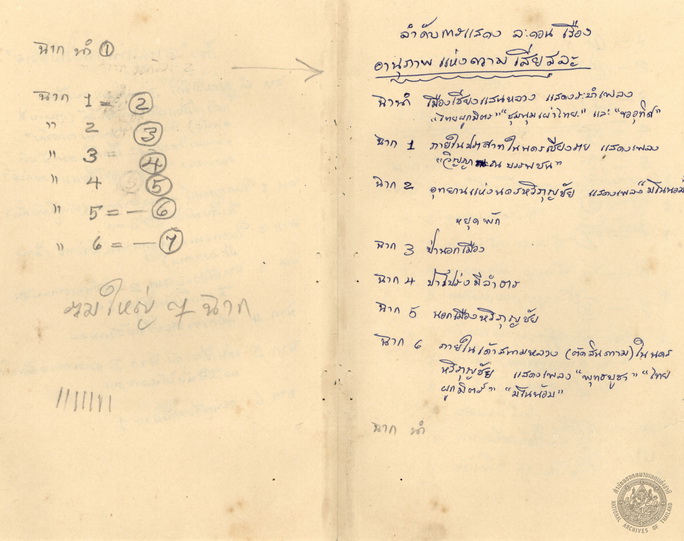 ฉาก นำ ①
ฉาก 1 = ②
" 2 ③
" 3 = ④
" 4 ⑤
" 5 = — ⑥
" 6 = — ⑦
รวมใหญ่ ๗ ฉาก
ลำดับการแสดง ละคอน เรื่อง
อานุภาพ แห่งความ เสียสละ
ฉากนำ เมืองเชียงแสนหลวง แสดงระบำเพลง
"ไทยผูกมิตร" "ชุมนุมเผ่าไทย" และ
ฉาก 1 ภายในปราสาทในนครเชียงราย แสดงเพลง
"วิญญาณ บรรพชน"
ฉาก 2 อุทยานแห่งนครหริภุญชัย แสดงเพลง "มโนห์
หยุดพัก
ฉาก 3 ป่านอกเมือง
ฉาก 4 ป่าโปร่งมีลำธาร
ฉาก 5 นอกเมืองหริภุญชัย
ฉาก 6 ภายในเค้าสนามหลวง (ตัดสินความ) ในนคร
หริภุญชัย แสดงเพลง "พุทธบูชา" "ไทย
ผูกมิตร"
ฉาก นำ
สำนักหอจดหมายเหตุแห่งชาติ
NATIONAL ARCHIVES OF THAILAND